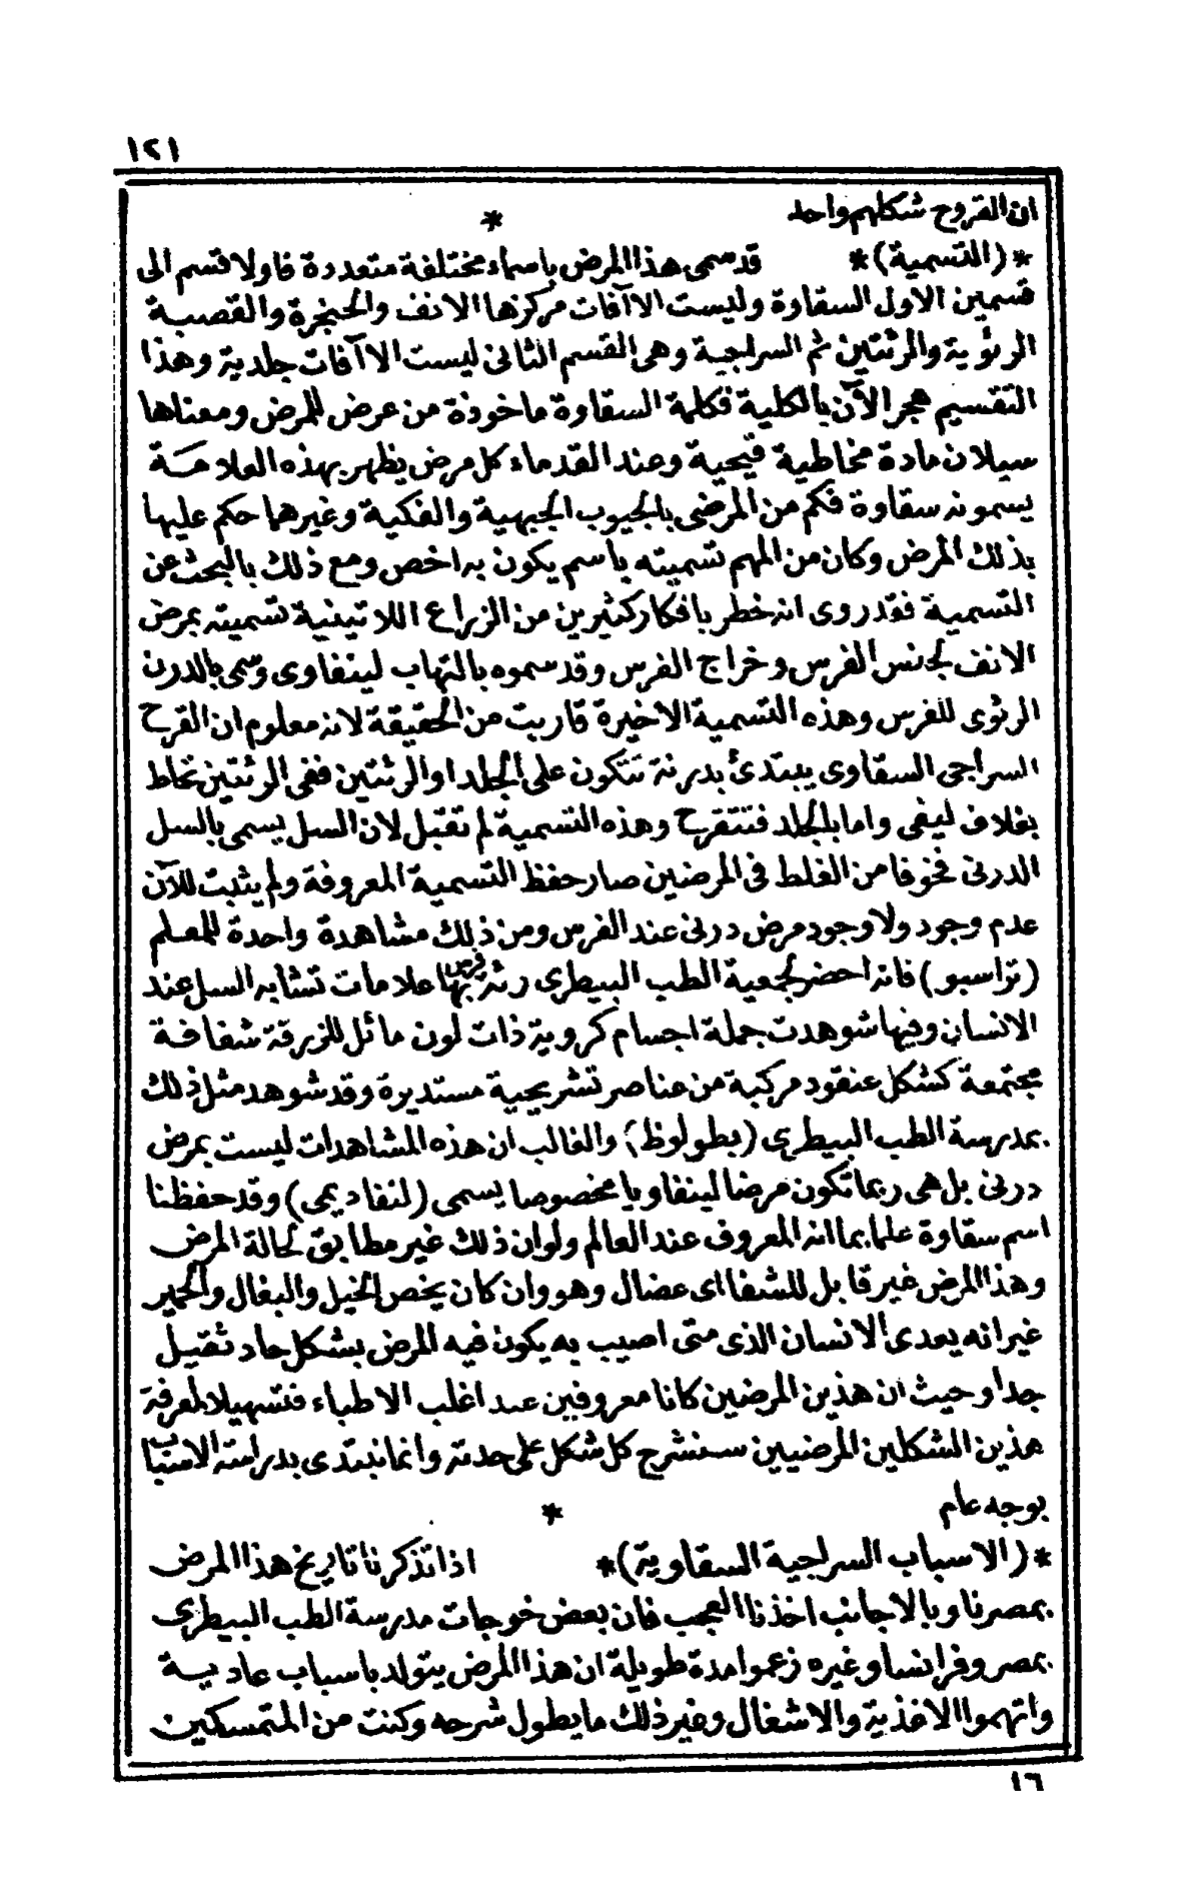 ١٢١
ان القروح شكلهم واحد *
*(التسمية)* قد سمى هذا المرض باسماء مختلفة متعددة فاولا قسم الى
قسمين الاول السقاوة وليست الا آفات مركزها الانف والحنجرة والقصبة
الرئوية والرئتين ثم السراجية وهى القسم الثانى ليست الا آفات جلدية وهذا
التقسيم هجر الآن بالكلية فكلمة السقاوة ماخوذة من عرض للمرض ومعناها
سيلان مادة مخاطية قيحية وعند القدماء كل مرض يظهر بهذه العلامة
يسمونه سقاوة فكم من المرضى بالجيوب الجبهية والفكية وغيرهما حكم عليها
بذلك المرض وكان من المهم تسميته باسم يكون به اخص ومع ذلك بالبحث عن
التسمية فقد روى انه خطر بافكار كثيرين من الزراع اللاتينية تسميته بمرض
الانف لجنس الفرس وخراج الفرس وقد سموه بالتهاب لينفاوى وسمى بالدرن
الرئوى للفرس وهذه التسمية الاخيرة قاربت من الحقيقة لانه معلوم ان القرح
السراجى السقاوى يبتدئ بدرنة تتكون على الجلد او الرئتين ففى الرئتين تحاط
بغلاف ليفى واما بالجلد فتتقرح وهذه التسمية لم تقبل لان السل يسمى بالسل
الدرنى فخوفا من الغلط فى المرضين صار حفظ التسمية المعروفة ولم يثبت للآن
عدم وجود ولا وجود مرض درنى عند الفرس ومن ذلك مشاهدة واحدة للمعلم
(تراسبو) فانه احضر لجمعية الطب البيطرى رئة فرس بها علامات تشابه السل عند
الانسان وفيها شوهدت جملة اجسام كروية ذات لون مائل للزرقة شفافة
مجتمعة كشكل عنقود مركبة من عناصر تشريحية مستديرة وقد شوهد مثل ذلك
بمدرسة الطب البيطرى (بطولوظ) والغالب ان هذه المشاهدات ليست بمرض
درنى بل هى ربما تكون مرضا لينفاويا مخصوصا يسمى (لنفاديمى) وقد حفظنا
اسم سقاوة علما بما انه المعروف عند العالم ولو ان ذلك غير مطابق لحالة المرض
وهذا المرض غير قابل للشفا اى عضال وهو وان كان يخص الخيل والبغال والحمير
غير انه يعدى الانسان الذى متى اصيب به يكون فيه المرض بشكل حاد ثقيل
جدا وحيث ان هذين المرضين كانا معروفين عند اغلب الاطباء فتسهيلا لمعرفة
هذين الشكلين المرضيين سنشرح كل شكل على حدته وانما نبتدى بدراسة الاسباب
بوجه عام *
*(الاسباب السراجية السقاوية)* اذا تذكرنا تاريخ هذا المرض
بمصرنا وبالاجانب اخذنا العجب فان بعض خوجات مدرسة الطب البيطرى
بمصر وفرانسا وغيره زعموا مدة طويلة ان هذا المرض يتولد باسباب عادية
واتهموا الاغذية والاشغال وغير ذلك ما يطول شرحه وكنت من المتمسكين
١٦